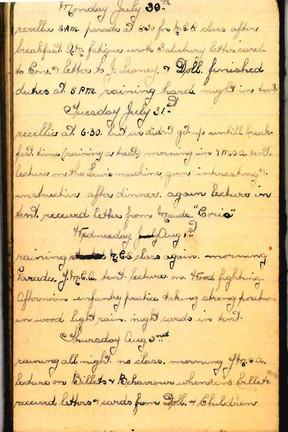 Monday July 30th
reveille 6 AM. parade at 6.30 for N.C.O. class after
breakfast Am fatigue work Salisbury letter cards
to Enos & letter to J. Leaney, & Doll, finished
duties at 5 P.M. raining hard night in tent.
Tuesday July 31st
reveille at 6.30. but we didn't get up untill break-
fast time (raining a treat) morning in Y.M.C.A. tent.
lecture on the Lewis machine gun interesting &
instructive after dinner, again lecture in
tent. received letter from Maude "Corio"
Wednesday Aug 1st
raining N.C.O. class again. morning
Parade, Y.M.C.A. tent lecture on Wood fighting.
Afternoon infantry practice taking strong position
in wood light rain. night cards in tent.
Thursday Aug 2nd
raining all night no class. morning Y.M.C.A.
lecture on Billets & Behaviour when in billets
received letters & cards from Doll. & Children